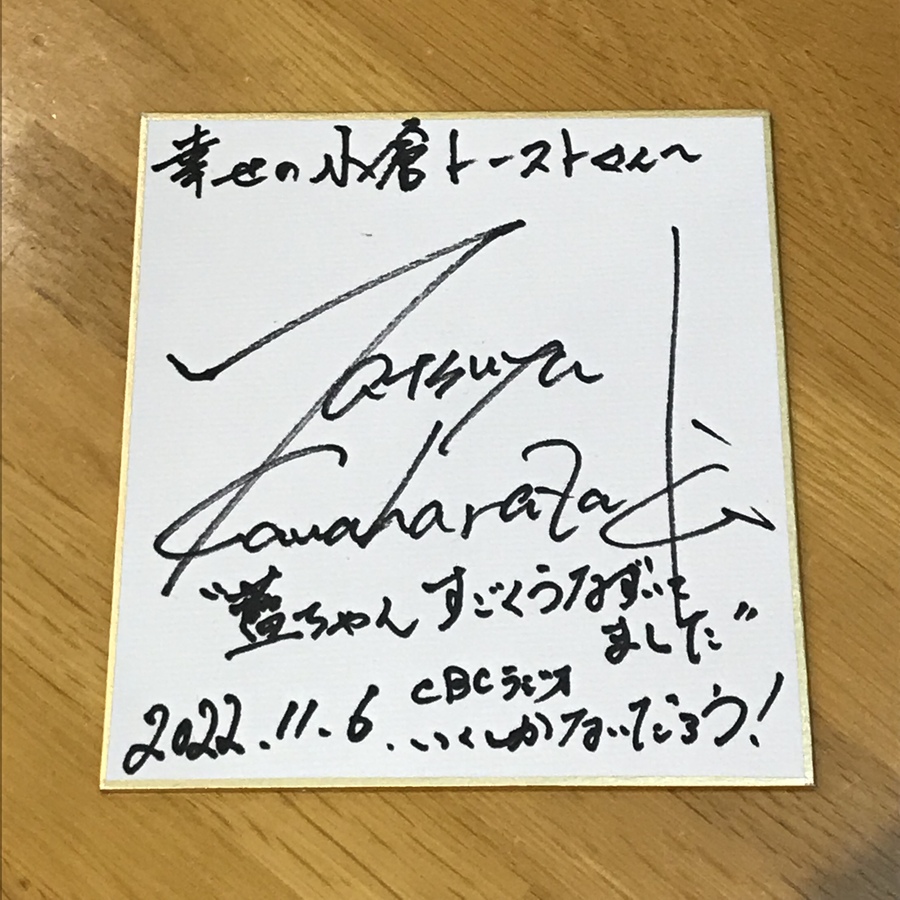 幸せの小倉トーストさんへ
Tatsuya
Kawaharazaki
"藍ちゃんすごくうなずいて
ました"
CBCラジオ
2022.11.6. いくしかないだろう!